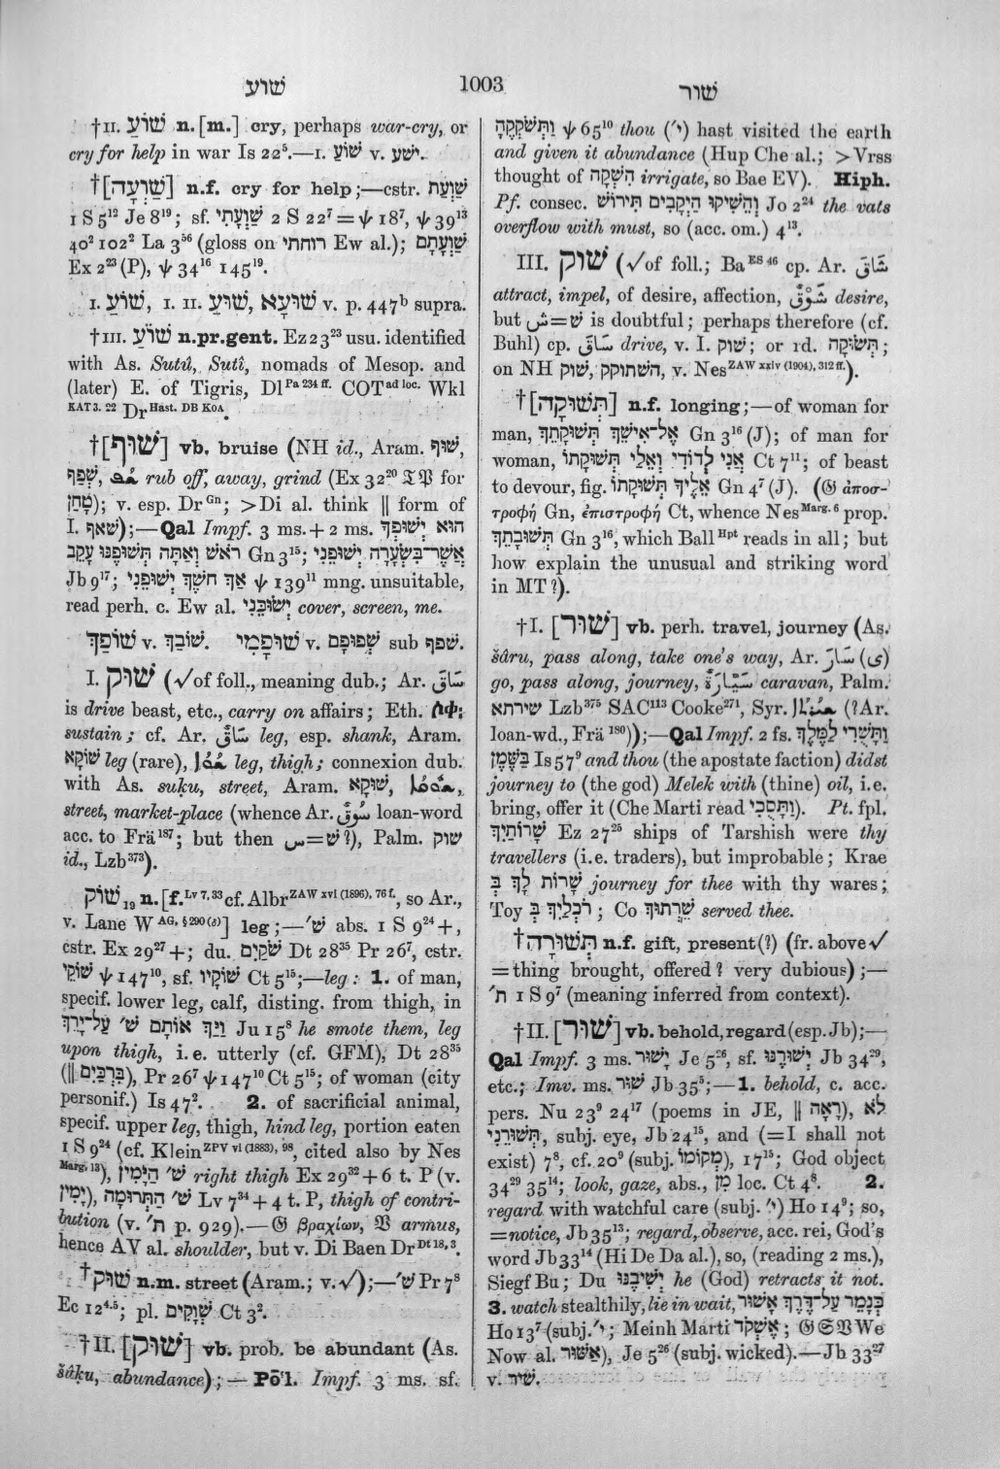 שׁוע
1003
שׁור
†II. שׁוֹעַ n.[m.] cry, perhaps war-cry, or
cry for help in war Is 22⁵.—I. שׁוֹעַ v. ישׁע.
†[שַׁוְעָה] n.f. cry for help;—cstr. שַׁוְעַת
1 S 5¹² Je 8¹⁹; sf. שַׁוְעָתִי 2 S 22⁷=ψ 18⁷, ψ 39¹³
40² 102² La 3⁵⁶ (gloss on רוחתי Ew al.); שַׁוְעָתָם
Ex 2²³ (P), ψ 34¹⁶ 145¹⁹.
I. שׁוֹעַ, I. II. שׁוּעַ, שׁוּעָא v. p. 447ᵇ supra.
†III. שׁוֹעַ n.pr.gent. Ez 23²³ usu. identified
with As. Sutû, Sutî, nomads of Mesop. and
(later) E. of Tigris, Dl Pa 234 ff. COT ad loc. Wkl
KAT 3. 22 Dr Hast. DB KOA.
†[שׁוּף] vb. bruise (NH id., Aram. שׁוּף,
שְׁפַף, ܫܳܦ rub off, away, grind (Ex 32²⁰ 𝔗𝔓 for
טָחַן); v. esp. Dr Gn; >Di al. think ‖ form of
I. שׁאף);—Qal Impf. 3 ms. + 2 ms. הוּא יְשׁוּפְךָ
רֹאשׁ וְאַתָּה תְּשׁוּפֶנּוּ עָקֵב Gn 3¹⁵; אֲשֶׁר־בִּשְׂעָרָה יְשׁוּפֵנִי
Jb 9¹⁷; אַךְ חשֶׁךְ יְשׁוּפֵנִי ψ 139¹¹ mng. unsuitable,
read perh. c. Ew al. יְשׂוּכֵּנִי cover, screen, me.
שׁוֹפַךְ v. שׁוֹבַךְ. שׁוּפָמִי v. שְׁפוּפָם sub שׁפף.
I. שׁוּק (√of foll., meaning dub.; Ar. سَاقَ
is drive beast, etc., carry on affairs; Eth.
sustain; cf. Ar. سَاقٌ leg, esp. shank, Aram.
שׁוֹקָא leg (rare), ܫܳܩܳܐ leg, thigh; connexion dub.
with As. suḳu, street, Aram. שׁוּקָא, ܫܘܩܐ,
street, market-place (whence Ar. سُوقٌ loan-word
acc. to Frä¹⁸⁷; but then س=שׁ?), Palm. שׁוק
id., Lzb³⁷³).
שׁוֹק₁₉ n.[f. Lv 7, 33 cf. Albr ZAW xvi (1896), 76 f., so Ar.,
v. Lane W AG, § 290 (δ)] leg;—שׁ׳ abs. 1 S 9²⁴+,
cstr. Ex 29²⁷+; du. שֹׁקַיִם Dt 28³⁵ Pr 26⁷, cstr.
שׁוֹקֵי ψ 147¹⁰, sf. שׁוֹקָיו Ct 5¹⁵;—leg: 1. of man,
specif. lower leg, calf, disting. from thigh, in
וַיַּךְ אוֹתָם שׁ׳ עַל־יָרֵךְ Ju 15⁸ he smote them, leg
upon thigh, i.e. utterly (cf. GFM), Dt 28³⁵
(‖ בִּרְכַּיִם), Pr 26⁷ ψ 147¹⁰ Ct 5¹⁵; of woman (city
personif.) Is 47². 2. of sacrificial animal,
specif. upper leg, thigh, hind leg, portion eaten
1 S 9²⁴ (cf. Klein ZPV vi (1883), 98, cited also by Nes
Marg. 13), שׁ׳ הַיָּמִין right thigh Ex 29²²+6 t. P (v.
יָמִין), שׁ׳ הַתְּרוּמָה Lv 7³⁴+4 t. P, thigh of contri-
bution (v. ת׳ p. 929).—𝔊 βραχίων, 𝔙 armus,
hence AV al. shoulder, but v. Di Baen Dr Dt 18, 3.
†שׁוּק n.m. street (Aram.; v. √);—שׁ׳ Pr 7⁸
Ec 12⁴·⁵; pl. שְׁוָקִים Ct 3².
†II. [שׁוּק] vb. prob. be abundant (As.
šâḳu, abundance);—Pō‘l. Impf. 3 ms. sf.
וַתְּשֹׁקְקֶהָ ψ 65¹⁰ thou (י׳) hast visited the earth
and given it abundance (Hup Che al.; >Vrss
thought of הִשְׁקָה irrigate, so Bae EV). Hiph.
Pf. consec. וְהֵשִׁיקוּ הַיְקָבִים תִּירוֹשׁ Jo 2²⁴ the vats
overflow with must, so (acc. om.) 4¹³.
III. שׁוּק (√of foll.; Ba ES 46 cp. Ar. شَاقَ
attract, impel, of desire, affection, شَوْقٌ desire,
but ش=שׁ is doubtful; perhaps therefore (cf.
Buhl) cp. سَاقَ drive, v. I. שׁוק; or rd. תְּשֻׁקָה;
on NH שׁוק, השׁתוקק, v. Nes ZAW xxiv (1904), 312 ff.).
†[תְּשׁוּקָה] n.f. longing;—of woman for
man, אֶל־אִישֵׁךְ תְּשׁוּקָתֵךְ Gn 3¹⁶ (J); of man for
woman, אֲנִי לְדוֹדִי וְעָלַי תְּשׁוּקָתוֹ Ct 7¹¹; of beast
to devour, fig. אֵלֶיךָ תְּשׁוּקָתוֹ Gn 4⁷ (J). (𝔊 ἀποσ-
τροφή Gn, ἐπιστροφή Ct, whence Nes Marg. 6 prop.
תְּשׁוּבָתֵךְ Gn 3¹⁶, which Ball Hpt reads in all; but
how explain the unusual and striking word
in MT?).
†I. [שׁוּר] vb. perh. travel, journey (As.
šâru, pass along, take one's way, Ar. سَارَ (ى)
go, pass along, journey, سَيَّارَةٌ caravan, Palm.
שירתא Lzb³⁷⁵ SAC¹¹³ Cooke²⁷¹, Syr. ܫܝܪܬܐ (?Ar.
loan-wd., Frä ¹⁸⁰));—Qal Impf. 2 fs. וַתָּשֻׁרִי לַמֶּלֶךְ
בַּשֶּׁמֶן Is 57⁹ and thou (the apostate faction) didst
journey to (the god) Melek with (thine) oil, i.e.
bring, offer it (Che Marti read וַתָּסֻכִי). Pt. fpl.
שָׁרוֹתַיִךְ Ez 27²⁵ ships of Tarshish were thy
travellers (i.e. traders), but improbable; Krae
שָׁרוֹת לָךְ בְּ journey for thee with thy wares;
Toy רֹכְלַיִךְ בְּ; Co שֵׁרְתוּךְ served thee.
†תְּשׁוּרָה n.f. gift, present(?) (fr. above √
=thing brought, offered? very dubious);—
ת׳ 1 S 9⁷ (meaning inferred from context).
†II. [שׁוּר] vb. behold, regard (esp. Jb);—
Qal Impf. 3 ms. יָשׁוּר Je 5²⁶, sf. יְשׁוּרֶנּוּ Jb 34²⁹,
etc.; Imv. ms. שׁוּר Jb 35⁵;—1. behold, c. acc.
pers. Nu 23⁹ 24¹⁷ (poems in JE, ‖ רָאָה), לֹא
תְשׁוּרֵנִי, subj. eye, Jb 24¹⁵, and (=I shall not
exist) 7⁸, cf. 20⁹ (subj. מְקוֹמוֹ), 17¹⁵; God object
34²⁹ 35¹⁴; look, gaze, abs., מִן loc. Ct 4⁸. 2.
regard with watchful care (subj. י׳) Ho 14⁹; so,
=notice, Jb 35¹³; regard, observe, acc. rei, God's
word Jb 33¹⁴ (Hi De Da al.), so, (reading 2 ms.),
Siegf Bu; Du יְשִׁיבֶנּוּ he (God) retracts it not.
3. watch stealthily, lie in wait, כְּנָמֵר עַל־דֶּרֶךְ אָשׁוּר
Ho 13⁷ (subj. י׳; Meinh Marti אֶשְׁקֹד; 𝔊𝔖𝔙 We
Now al. אַשּׁוּר), Je 5²⁶ (subj. wicked).—Jb 33²⁷
v. שׁיר.